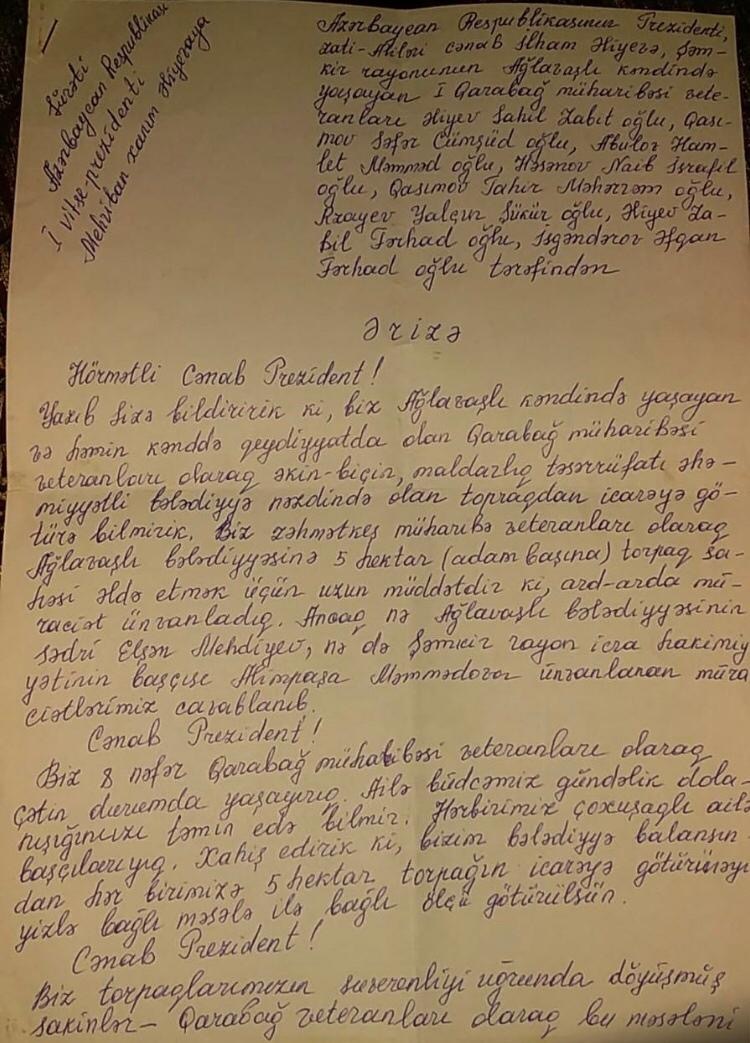 Surəti
Azərbaycan Respublikası
I vitse-prezidenti
Mehriban xanım Əliyevaya
Azərbaycan Respublikasının Prezidenti,
zati-Aliləri cənab İlham Əliyevə, Şəm-
kir rayonunun Ağlavaşlı kəndində
yaşayan I Qarabağ müharibəsi vete-
ranları Əliyev Sahil Zabit oğlu, Qası-
mov Səfər Cümşüd oğlu, Abılov Ham-
let Məmməd oğlu, Həsənov Naib İsrafil
oğlu, Qasımov Tahir Məhərrəm oğlu,
Rzayev Yalçın Şükür oğlu, Əliyev Za-
bil Fərhad oğlu, İsgəndərov Əfqan
Fərhad oğlu tərəfindən
Ərizə
Hörmətli Cənab Prezident!
Yazıb Sizə bildiririk ki, biz Ağlavaşlı kəndində yaşayan
və həmin kənddə qeydiyyatda olan Qarabağ müharibəsi
veteranları olaraq əkin-biçin, maldarlıq təsərrüfatı əhə-
miyyətli bələdiyyə nəzdində olan torpaqdan icarəyə gö-
türə bilmirik. Biz zəhmətkeş müharibə veteranları olaraq
Ağlavaşlı bələdiyyəsinə 5 hektar (adam başına) torpaq sa-
həsi əldə etmək üçün uzun müddətdir ki, ard-arda mü-
raciət ünvanladıq. Ancaq nə Ağlavaşlı bələdiyyəsinin
sədri Elşən Mehdiyev, nə də Şəmkir rayon icra hakimiy
yətinin başçısı Alimpaşa Məmmədov ünvanlanan müra
ciətlərimiz cavablanıb.
Cənab Prezident!
Biz 8 nəfər Qarabağ mühabibəsi veteranları olaraq
çətin durumda yaşayırıq. Ailə büdcəmiz gündəlik dola-
nışığımızı təmin edə bilmir. Hərbirimiz çoxuşaqlı ailə
başçılarıyıq. Xahiş edirik ki, bizim bələdiyyə balansın-
dan hər birimizə 5 hektar torpağın icarəyə götürüməyi
yizlə bağlı məsələ ilə bağlı ölçü götürülsün.
Cənab Prezident!
Biz torpaqlarımızın suverenliyi uğrunda döyüşmüş
sakinlər – Qarabağ veteranları olaraq bu məsələni